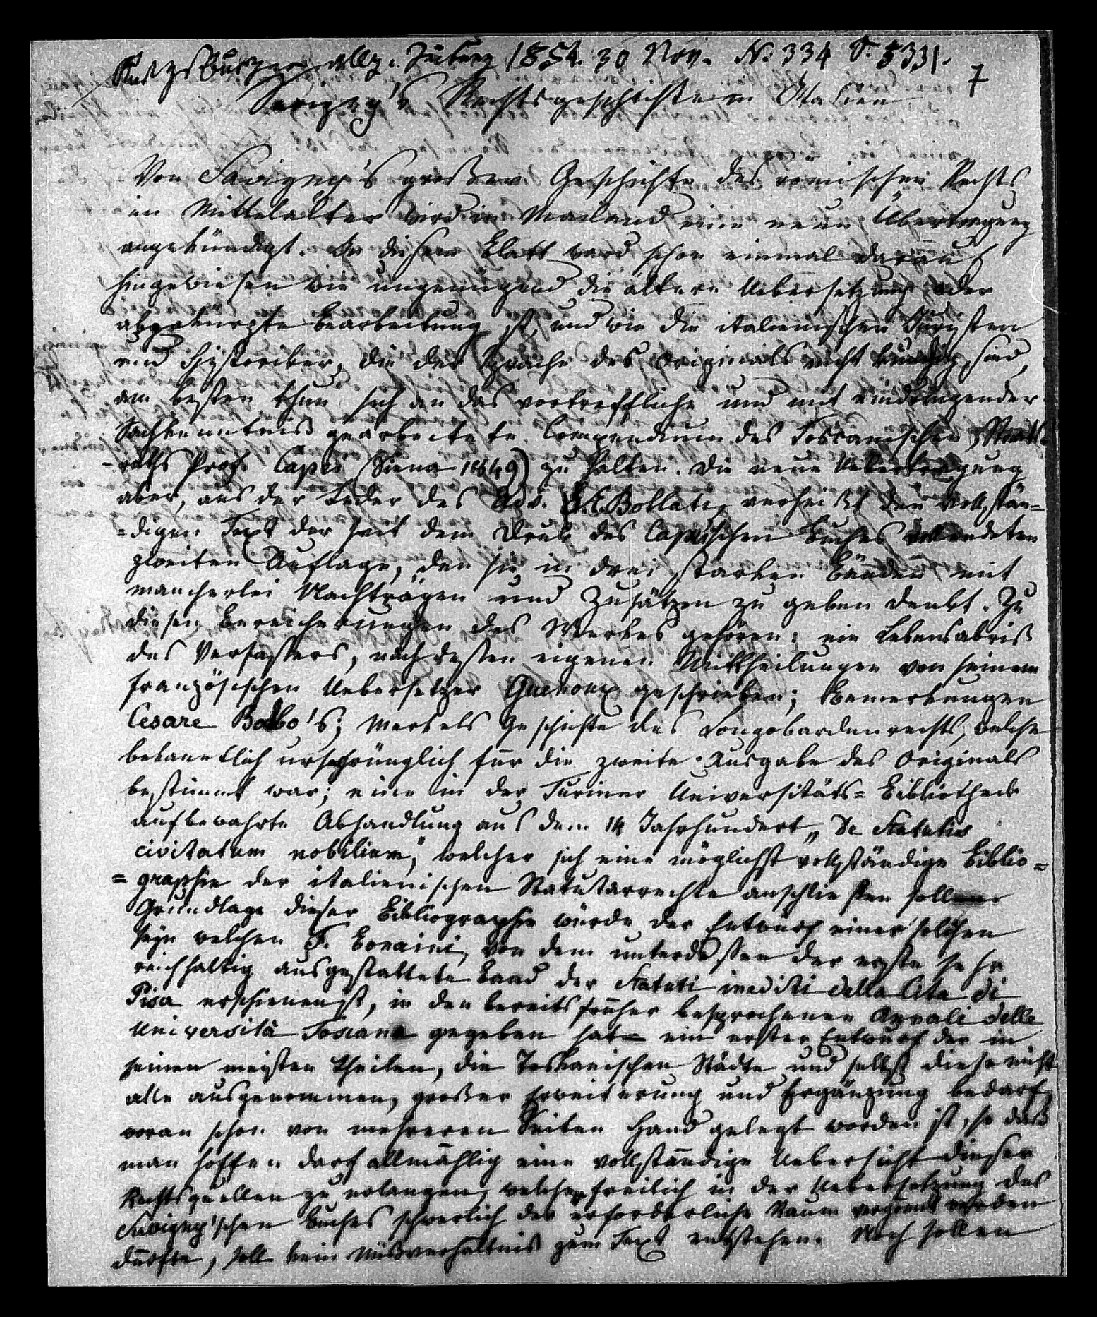 Augsburger allg. Zeitung 1854. 30 Nov. N. 334 S. 5331.
7
Savigny's Rechtsgeschichte in Italien
Von Savigny's grosser Geschichte des römischen Rechts
im Mittelalter wird in Mailand eine neue Übertragung
angekündigt. In diesem Blatt ward schon einmal darauf
hingewiesen wie ungenügend die ältere Uebersetzung oder
abgekürzte Bearbeitung ist, und wie die italienischen Juristen
und Historiker, die der Sprache des Originals nicht kundig sind,
am besten thun sich an das vortreffliche und mit eindringender
Sachkenntniss gearbeitete Compendium des Toscanischen
raths Prof. Capei (Siena 1849) zu halten. Die neue Uebertragung
aber, aus der Feder des Adv. E. Bollati, verheißt den vollstän=
=digen Text der seit dem Druck des Capeischen Buches vollendeten
zweiten Auflage, den sie in drei starken Bänden mit
mancherlei Nachträgen und Zusätzen zu geben denkt. Zu
diesen Bereicherungen des Werkes gehören: ein Lebensabriß
des Verfassers, nach dessen eigenen Mittheilungen von seinem
französischen Uebersetzer Guenoux geschrieben; Bemerkungen
Cesare Balbo's; Merkels Geschichte des Longobardenrechts, welche
bekanntlich ursprünglich für die zweite Ausgabe des Originals
bestimmt war; eine in der Turiner Universitäts=Bibliothek
aufbewahrte Abhandlung aus dem 14 Jahrhundert „De Statutis
civitatum nobilium," welcher sich eine möglichst vollständige Biblio=
=graphie der italienischen Statutarrechte anschließen soll
Grundlage dieser Bibliographie würde der Entwurf einer solchen
sein welchen F. Bonaini, von dem unterdessen der erste sehr
reichhaltig ausgestattete Band der Statuti inediti della Citta di
Pisa erschienen ist, in den bereits früher besprochenen Annali delle
Università Toscane gegeben hat ein erster Entwurf der in
seinen meisten Theilen, die Toskanischen Städte und selbst diese nicht
alle ausgenommen, grosser Erweiterung und Ergänzung bedarf,
woran schon von mehreren Seiten Hand gelegt worden ist, so daß
man hoffen darf allmählig eine vollständige Uebersicht dieser
Rechtsquellen zu erlangen, welcher freilich in der Uebersetzung des
Savigny'schen Buches schwerlich der erforderliche Raum werden
dürfte, soll kein Missverhältnis zum Text entstehen. Noch sollen